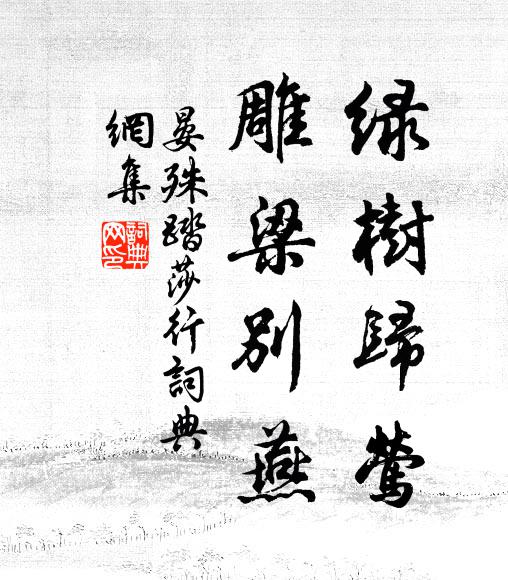 绿樹歸鶯
雕梁別燕
晏殊踏莎行詞典
網集
詞典
网印